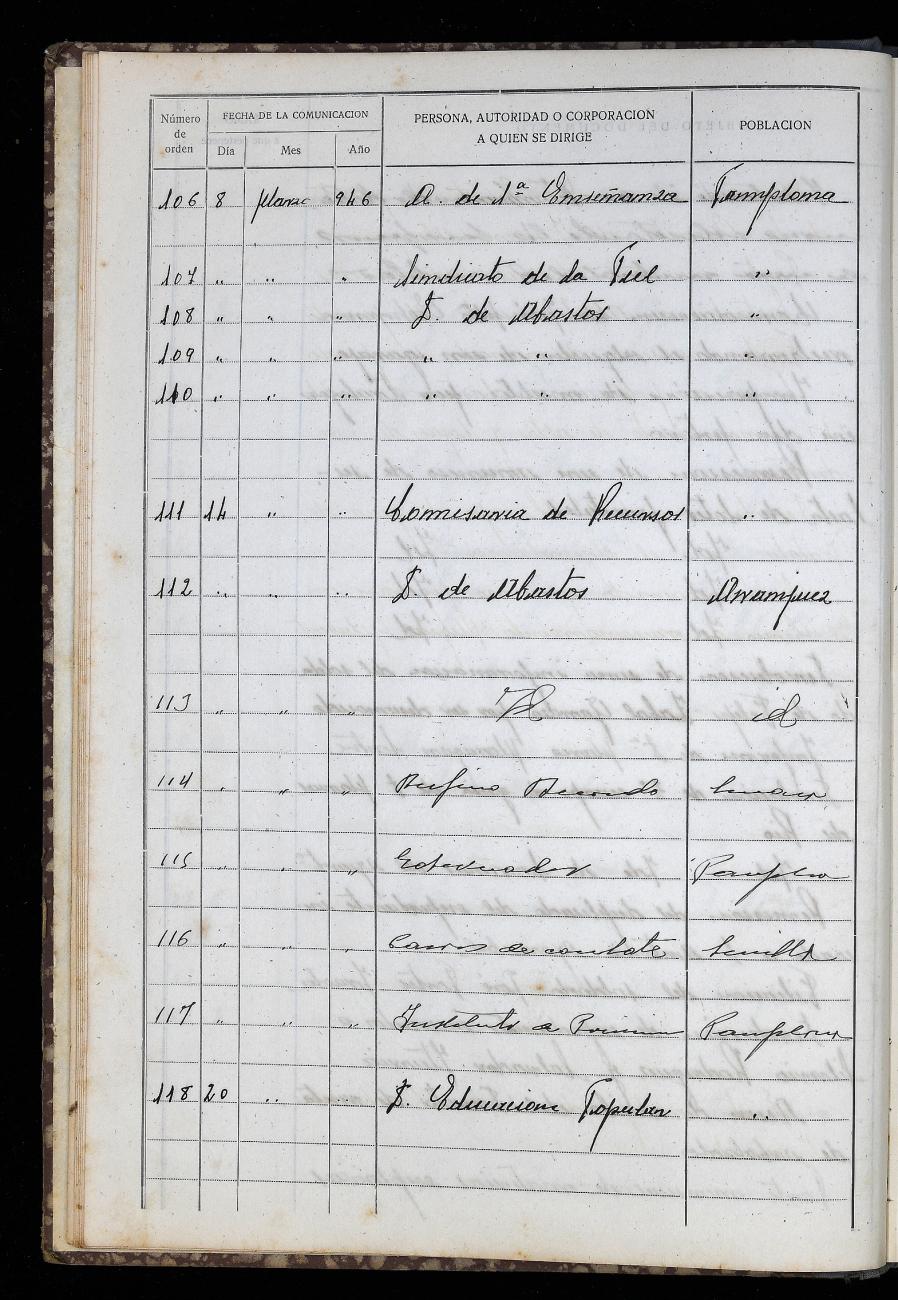 Número de orden FECHA DE LA COMUNICACION PERSONA, AUTORIDAD O CORPORACION A QUIEN SE DIRIGE POBLACION
Día Mes Año
106 8 Marzo 946 A. de 1ª Enseñanza Pamplona
107 " " " Sindicato de la Piel "
108 " " " D. de Abastos "
109 " " " " " "
110 " " " " " "
111 14 " " Comisaria de Recursos "
112 " " " D. de Abastos Arranjuez
113 " " " Id id
114 " " " Rufino
115 " " " Gobernador Pamplona
116 " " " de combate Sevilla
117 " " " Instituto Pamplona
118 20 " " D. Educacion Popular "